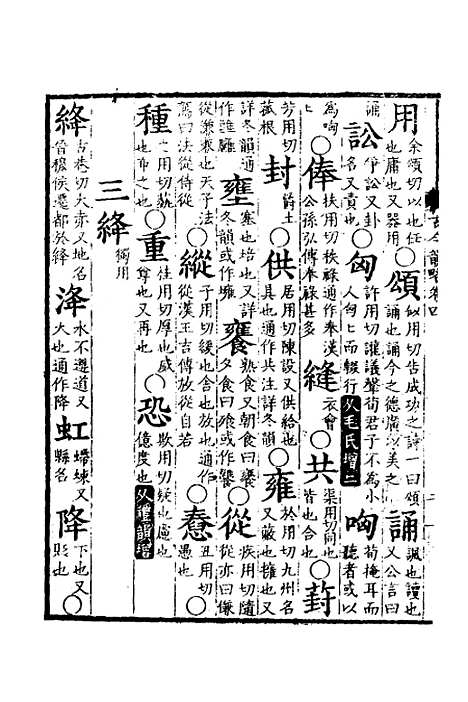 用余頌切以也任也庸也又器用〇頌似用切告成功之詩一曰頌誦也誦今之德廣以美之誦諷也讀也又公言曰誦
訟爭訟又卦名又責也〇匈許用切讙議聲荀君子不為小人匈匕而輟行从毛氏增二哅荀掩耳而聽者或以為哅匕
〇俸扶用切秩祿通作奉漢公孫弘傳奉祿甚多縫衣會〇共渠用切同也皆也合也〇葑芳用切菰根
封爵土〇供居用切陳設又供給也具也通作共注詳冬韻〇雍於用切九州名又蔽也擁也又詳冬韻通作雝
壅塞也培也又詳冬韻或作雍饔熟食又朝食曰饔夕食曰飧或作〇從疾用切隨從亦曰傔從兼
縱子用切緩也舍也放也通作從漢王吉傳放從自若〇憃丑用切愚也〇
種之用切蓺也布之也〇重柱用切厚也威尊也又再也〇恐欺用切疑也慮也億度也从禮韻增
三絳獨用
絳古巷切大赤又地名晉穆侯遷都於絳洚水不遵道又大也通作降虹螮蝀又縣名降下也又貶也〇
古今韻略卷四